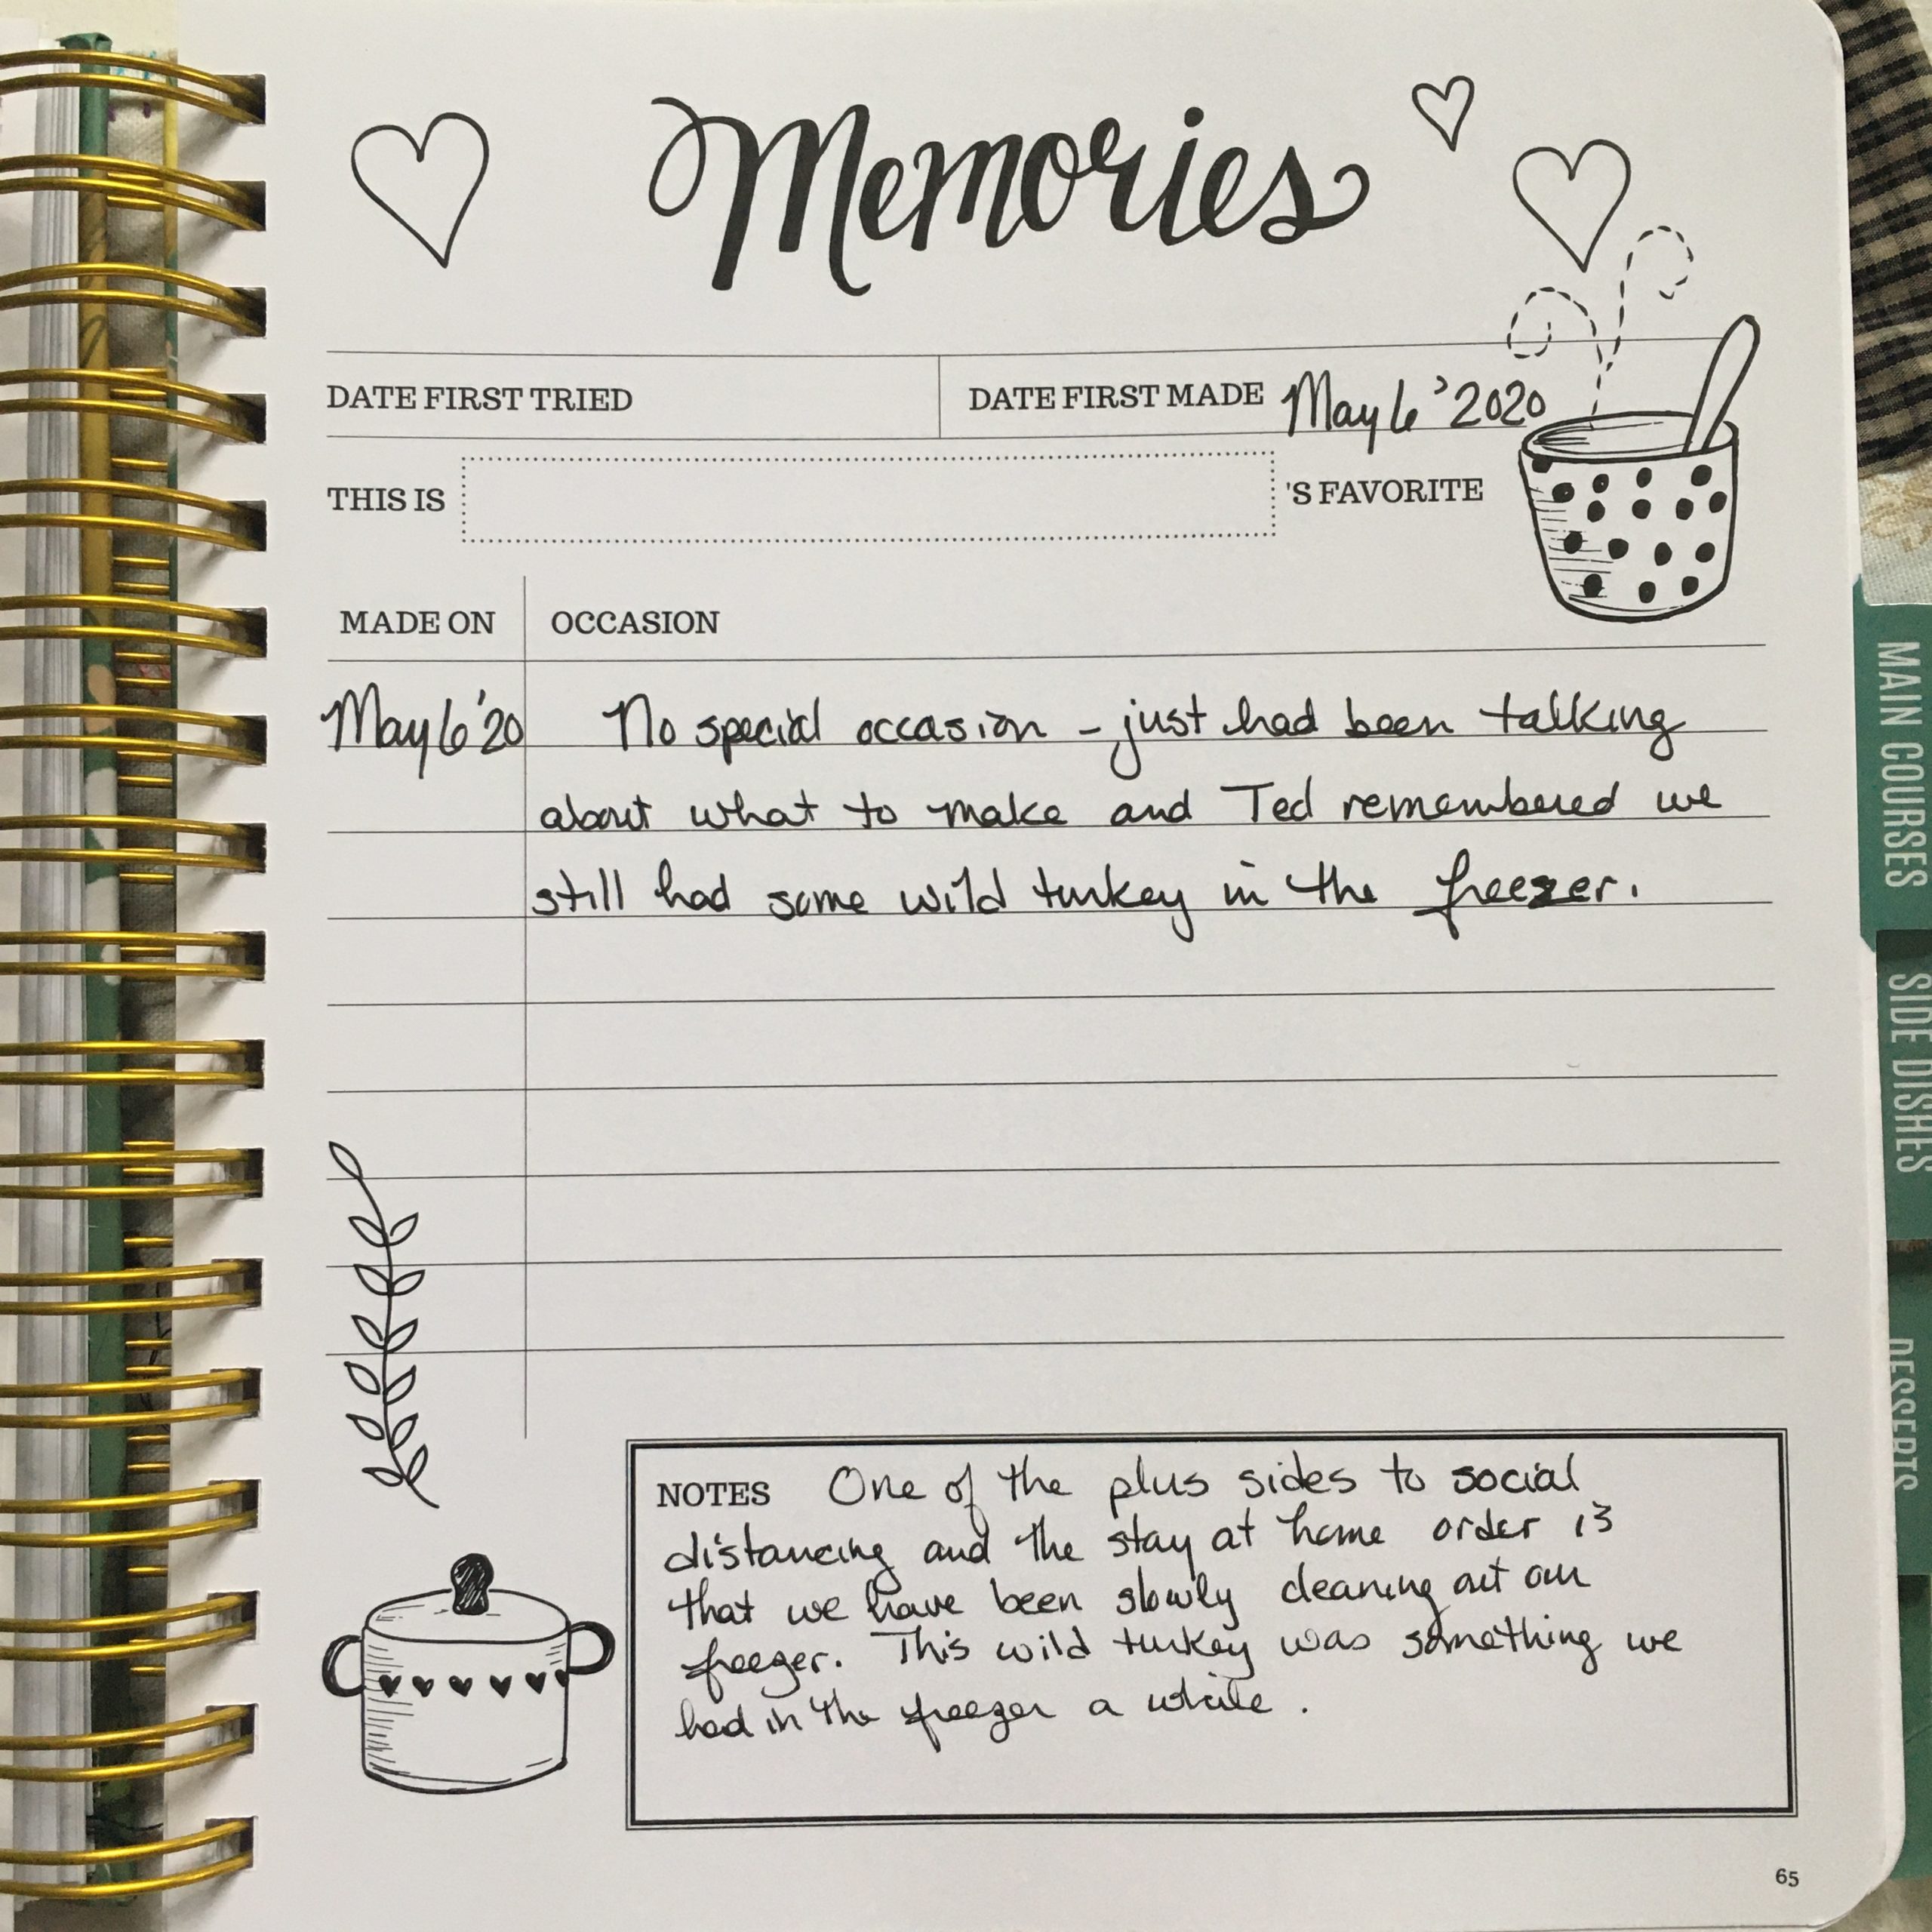 Memories
DATE FIRST TRIED
DATE FIRST MADE May 6 '2020
THIS IS 'S FAVORITE
MADE ON OCCASION
May 6 '20 No special occasion - just had been talking
about what to make and Ted remembered we
still had some wild turkey in the freezer.
NOTES One of the plus sides to social
distancing and the stay at home order is
that we have been slowly cleaning out our
freezer. This wild turkey was something we
had in the freezer a while.
65
MAIN COURSES
SIDE DISHES
DESSERTS